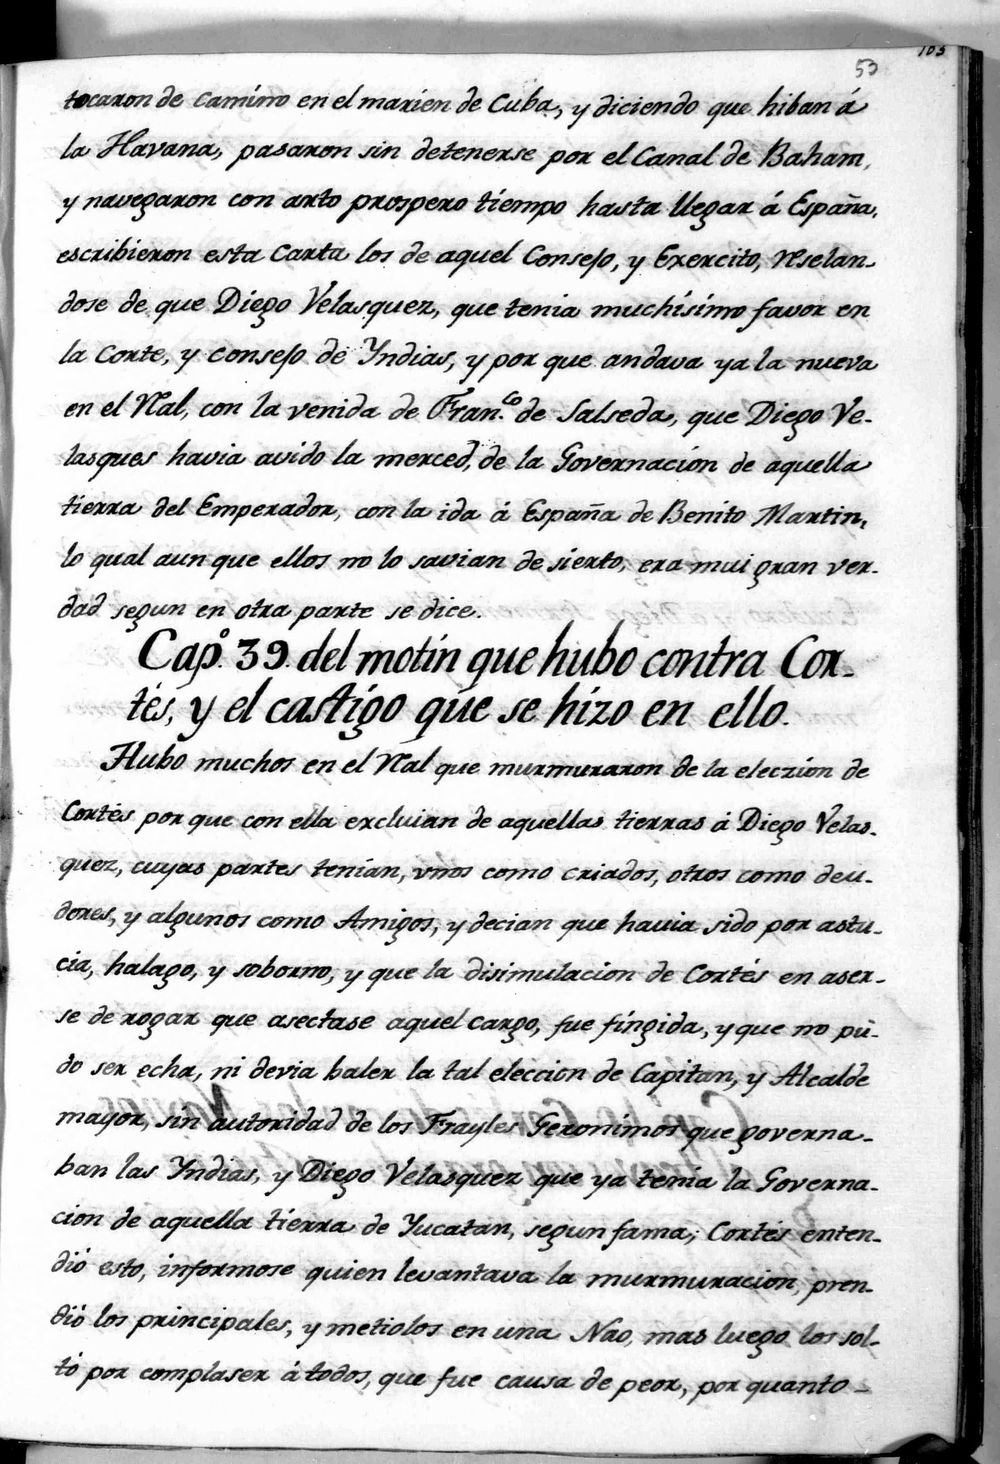 103
53
tocaron de camino en el marien de Cuba, y diciendo que hiban á
la Havana, pasaron sin detenerse por el Canal de Baham,
y navegaron con arto prospero tiempo hasta llegar á España,
escribieron esta Carta los de aquel Consejo, y Exercito, reselan-
dose de que Diego Velasquez, que tenia muchisimo favor en
la Corte, y consejo de Yndias, y por que andava ya la nueva
en el Rl̃al, con la venida de Fran.co de Salseda, que Diego Ve-
lasques havia avido la merced, de la Governacion de aquella
tierra del Emperador, con la ida á España de Benito Martin,
lo qual aun que ellos no lo savian de sierto, era mui gran ver-
dad segun en otra parte se dice.
Cap.o 39. del motin que hubo contra Cor-
tés, y el castigo que se hizo en ello.
Hubo muchos en el Rl̃al que murmuraron de la eleczion de
Cortés por que con ella excluian de aquellas tierras á Diego Velas-
quez, cuyas partes tenian, vnos como criados, otros como deu-
dores, y algunos como Amigos, y decian que havia sido por astu-
cia, halago, y soborno, y que la disimulacion de Cortés en aser-
se de rogar que asectase aquel cargo, fue fingida, y que no pu-
do ser echa, ni devia baler la tal eleccion de Capitan, y Alcalde
mayor, sin autoridad de los Frayles Geronimos que governa-
ban las Yndias, y Diego Velasquez que ya tenia la Governa-
cion de aquella tierra de Yucatan, segun fama; Cortés enten-
dió esto, informose quien levantava la murmuracion, pren-
dió los principales, y metiolos en una Nao, mas luego los sol-
tó por complaser á todos, que fue causa de peor, por quanto